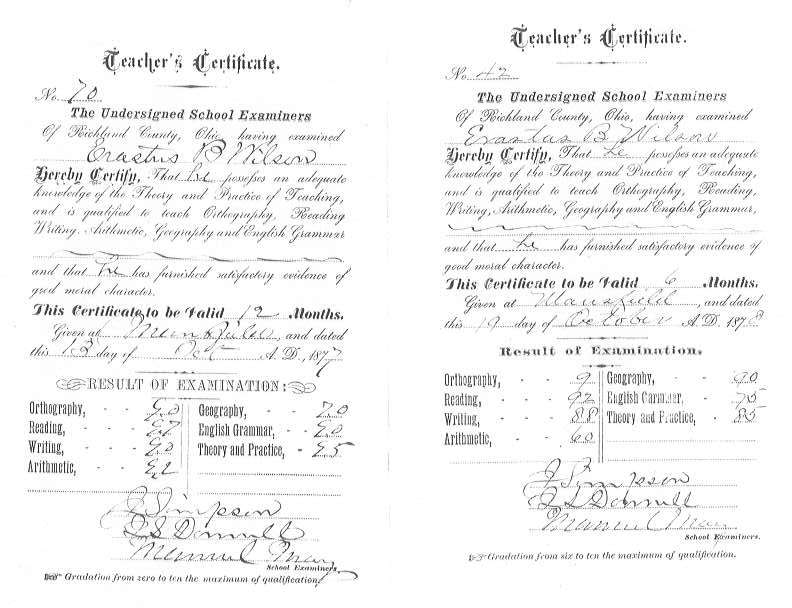 Teacher's Certificate.
No. 70
The Undersigned School Examiners
Of Richland County, Ohio, having examined
Erastus B Wilson
Hereby Certify, That he possesses an adequate
knowledge of the Theory and Practice of Teaching,
and is qualified to teach Orthography, Reading
Writing, Arithmetic, Geography and English Grammar
and that he has furnished satisfactory evidence of
good moral character.
This Certificate to be Valid 12 Months.
Given at Mansfield, and dated
this 13 day of Oct A. D., 1877
RESULT OF EXAMINATION:
Orthography, - -
Reading, - -
Writing, - -
Arithmetic, - -
Geography, - -
English Grammar, - -
Theory and Practice, -
J Simpson
Manuel May
School Examiners.
Gradation from zero to ten the maximum of qualification.
Teacher's Certificate.
No. 42
The Undersigned School Examiners
Of Richland County, Ohio, having examined
Erastus B Wilson
Hereby Certify, That he possesses an adequate
knowledge of the Theory and Practice of Teaching,
and is qualified to teach Orthography, Reading,
Writing, Arithmetic, Geography and English Grammar,
and that he has furnished satisfactory evidence of
good moral character.
This Certificate to be Valid 6 Months.
Given at Mansfield, and dated
this 19 day of October A. D. 1878
Result of Examination.
Orthography, - - 9
Reading, - - 92
Writing, - - 88
Arithmetic, - - 60
Geography, - - 90
English Grammar, - 75
Theory and Practice, - 85
J Simpson
Manuel May
School Examiners.
Gradation from six to ten the maximum of qualification.